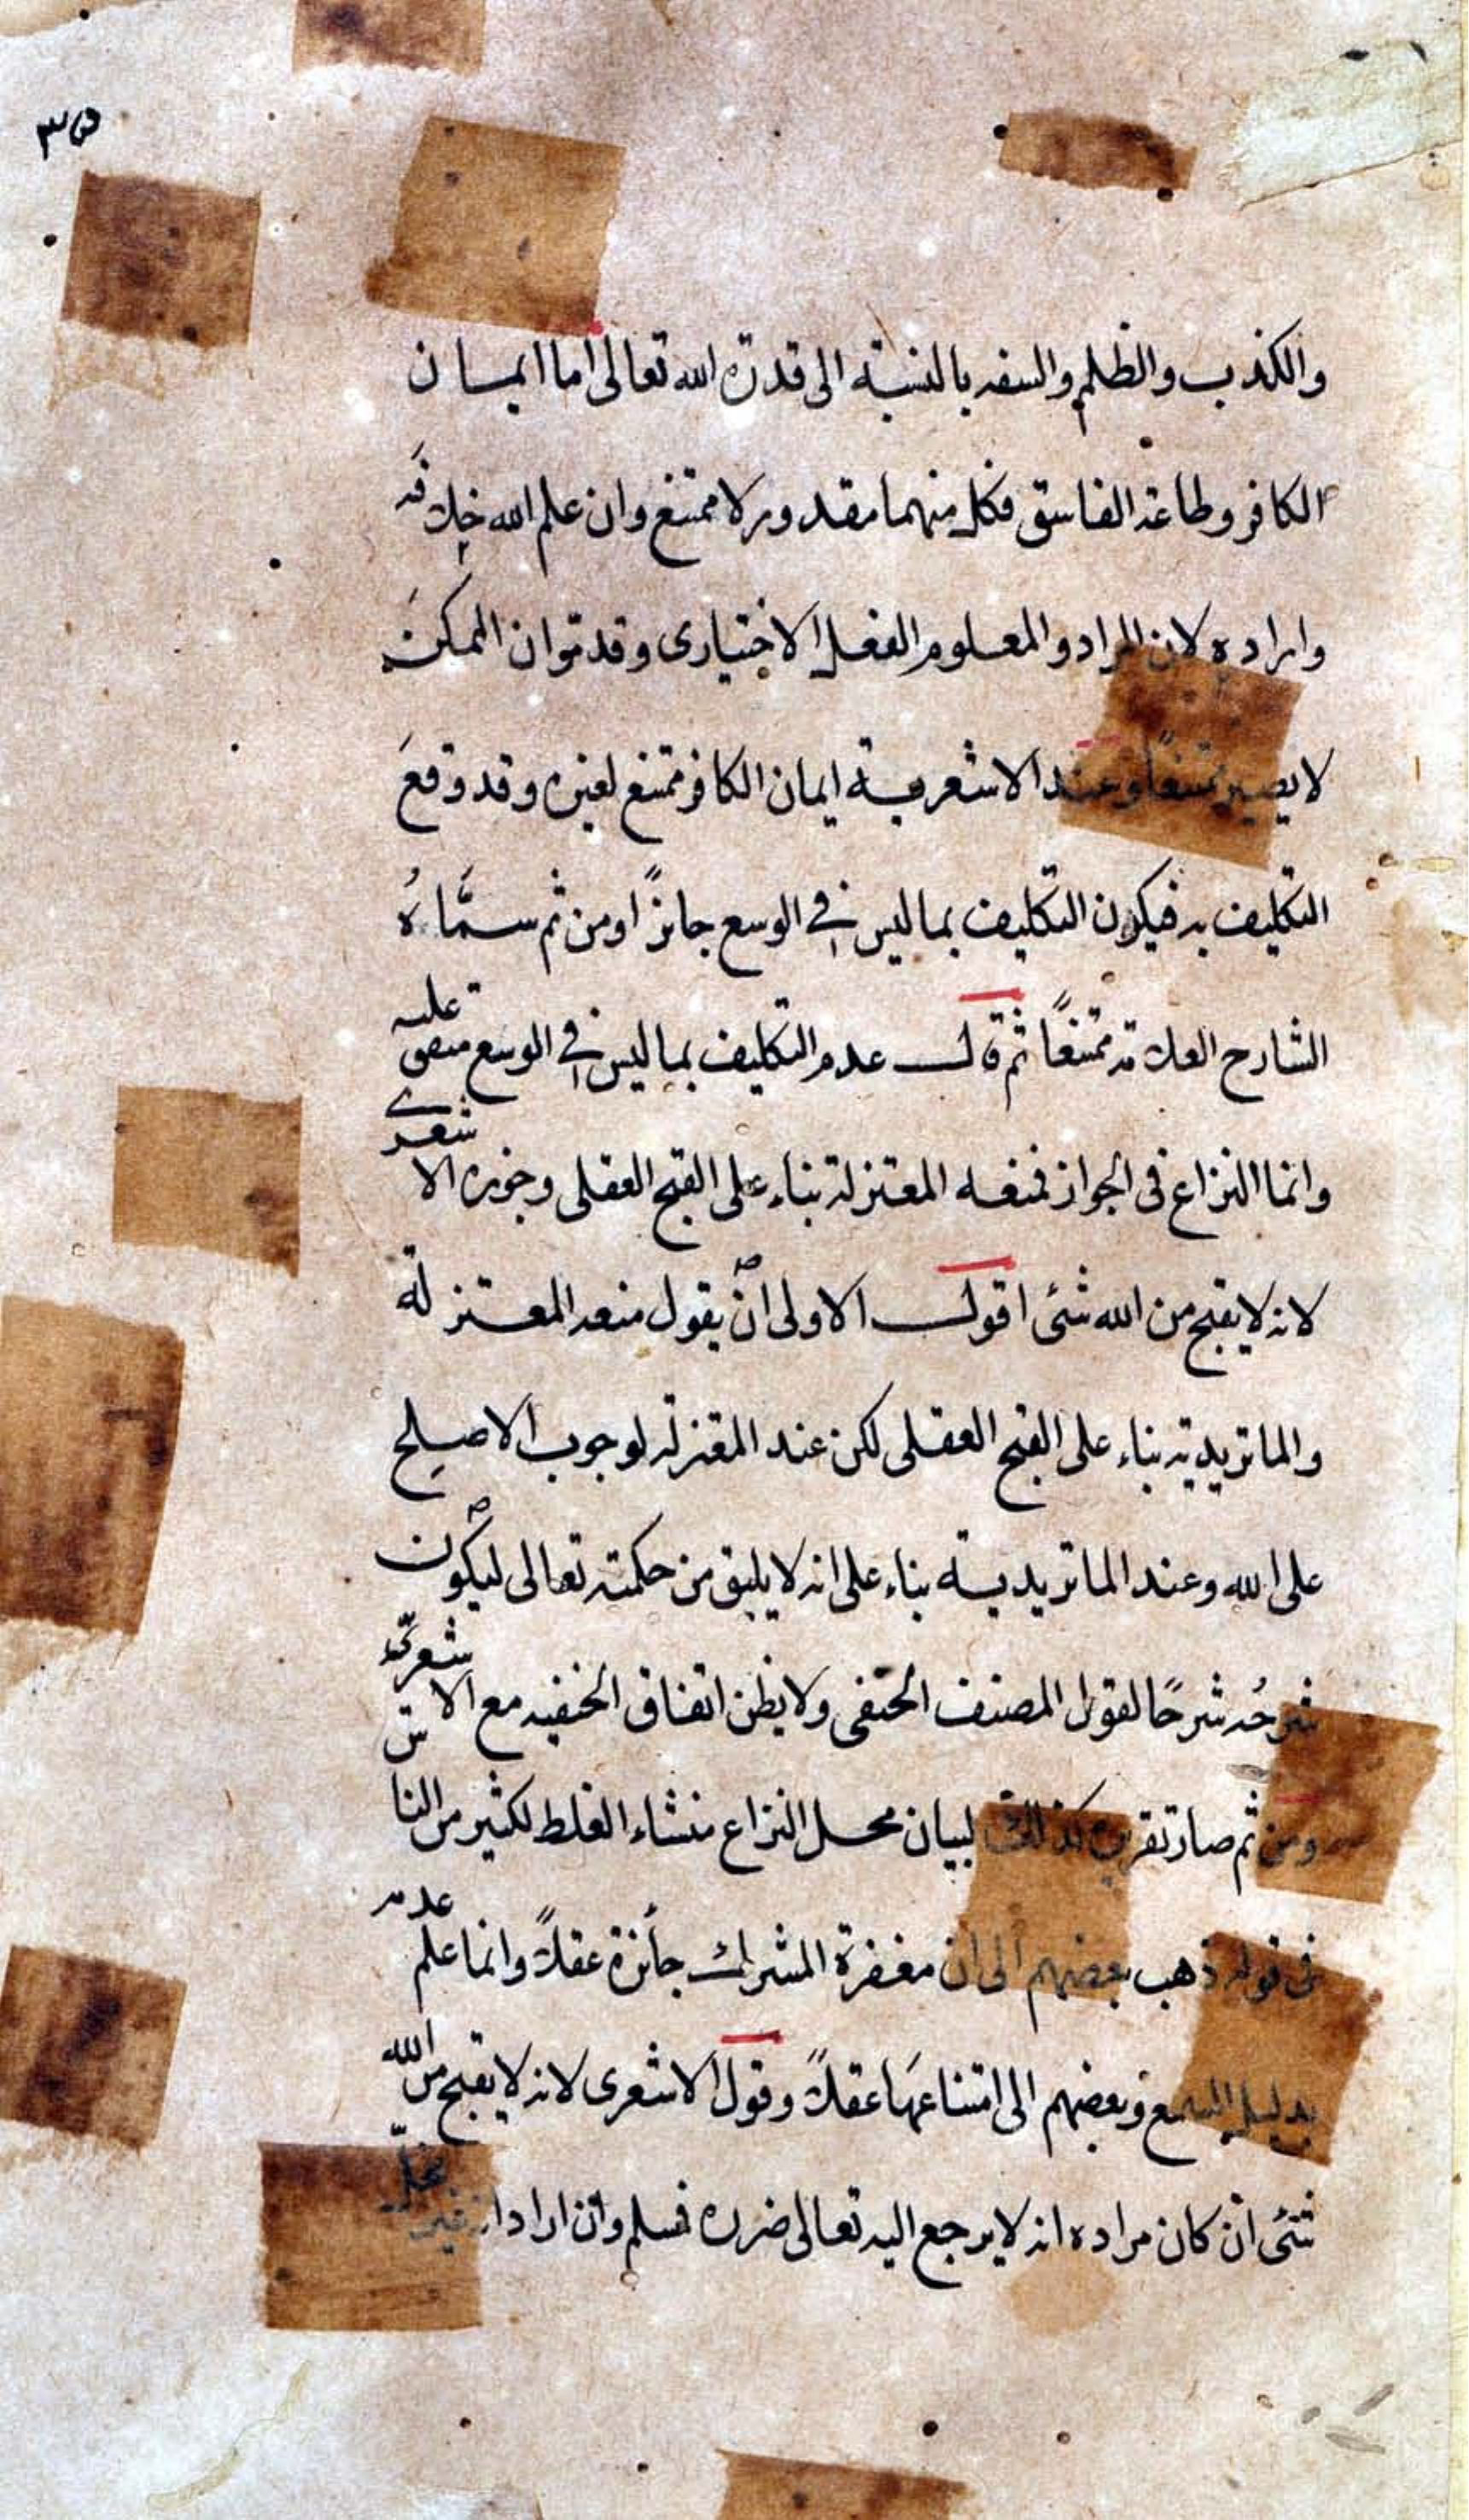 والكذب والظلم والسفه بالنسبة الى قدرة الله تعالى اما ايمان
الكافر وطاعة الفاسق فكل منهما مقدور لا ممتنع وان علم الله خلافه
واراده لان المراد والمعلوم الفعل الاختيارى وقد مر ان الممكن
لا يصير ممتنعًا وعند الاشعرية ايمان الكافر ممتنع لغيره وقد وقع
التكليف به فيكون التكليف بما ليس في الوسع جائزًا ومن ثم سمّاه
الشارح العلامة ممتنعًا ثم قال عدم التكليف بما ليس في الوسع متفق عليه
وانما النزاع فى الجواز فمنعه المعتزلة بناء على القبح العقلى وجوزه الاشعرى
لانه لا يقبح من الله شئى اقول الاولى ان يقول منعه المعتزلة
والماتريدية بناء على القبح العقلى لكن عند المعتزلة لوجوب الاصلح
على الله وعند الماتريدية بناء على انه لا يليق من حكمته تعالى ليكون
شرحُه شرحًا لقول المصنف الحنفى ولا يظن اتفاق الحنفيه مع الاشعرية
ومن ثم صار تقريره كذلك لبيان محل النزاع منشاء الغلط لكثير من الناس
فى قوله ذهب بعضهم الى ان مغفرة المشرك جائزة عقلاً وانما علم عدمه
بدليل السمع وبعضهم الى امتناعها عقلاً وقول الاشعرى لانه لا يقبح من الله
شئى ان كان مراده انه لا يرجع اليه تعالى ضرره فسلم وان اراد انه غير